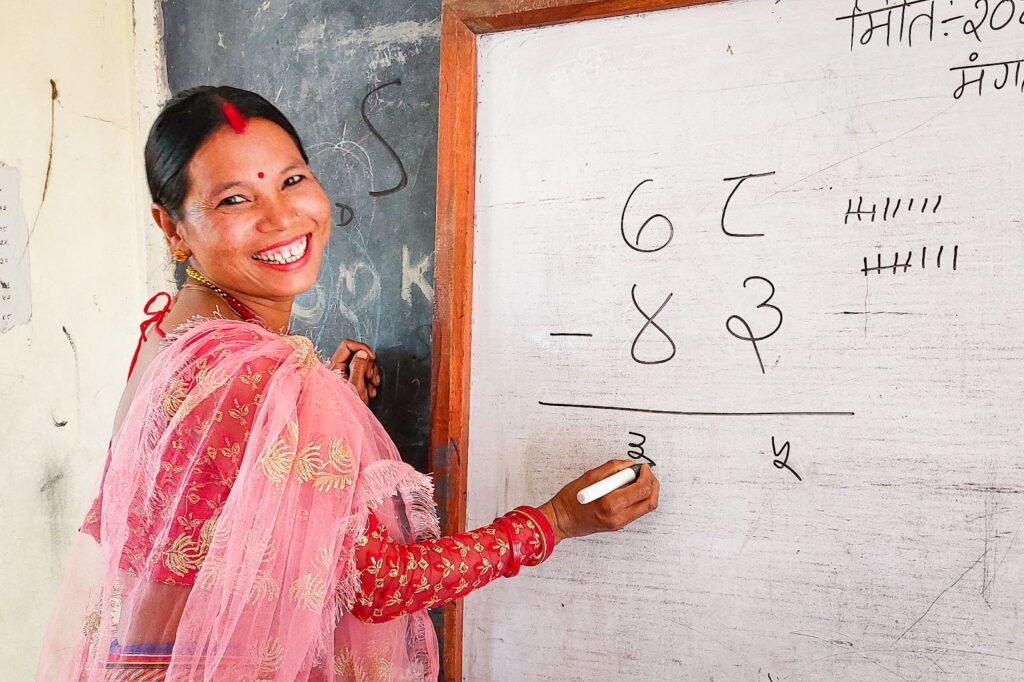 मिति:-२०
मंग
S
७ ८
D
K
- ४ ३
३ ५